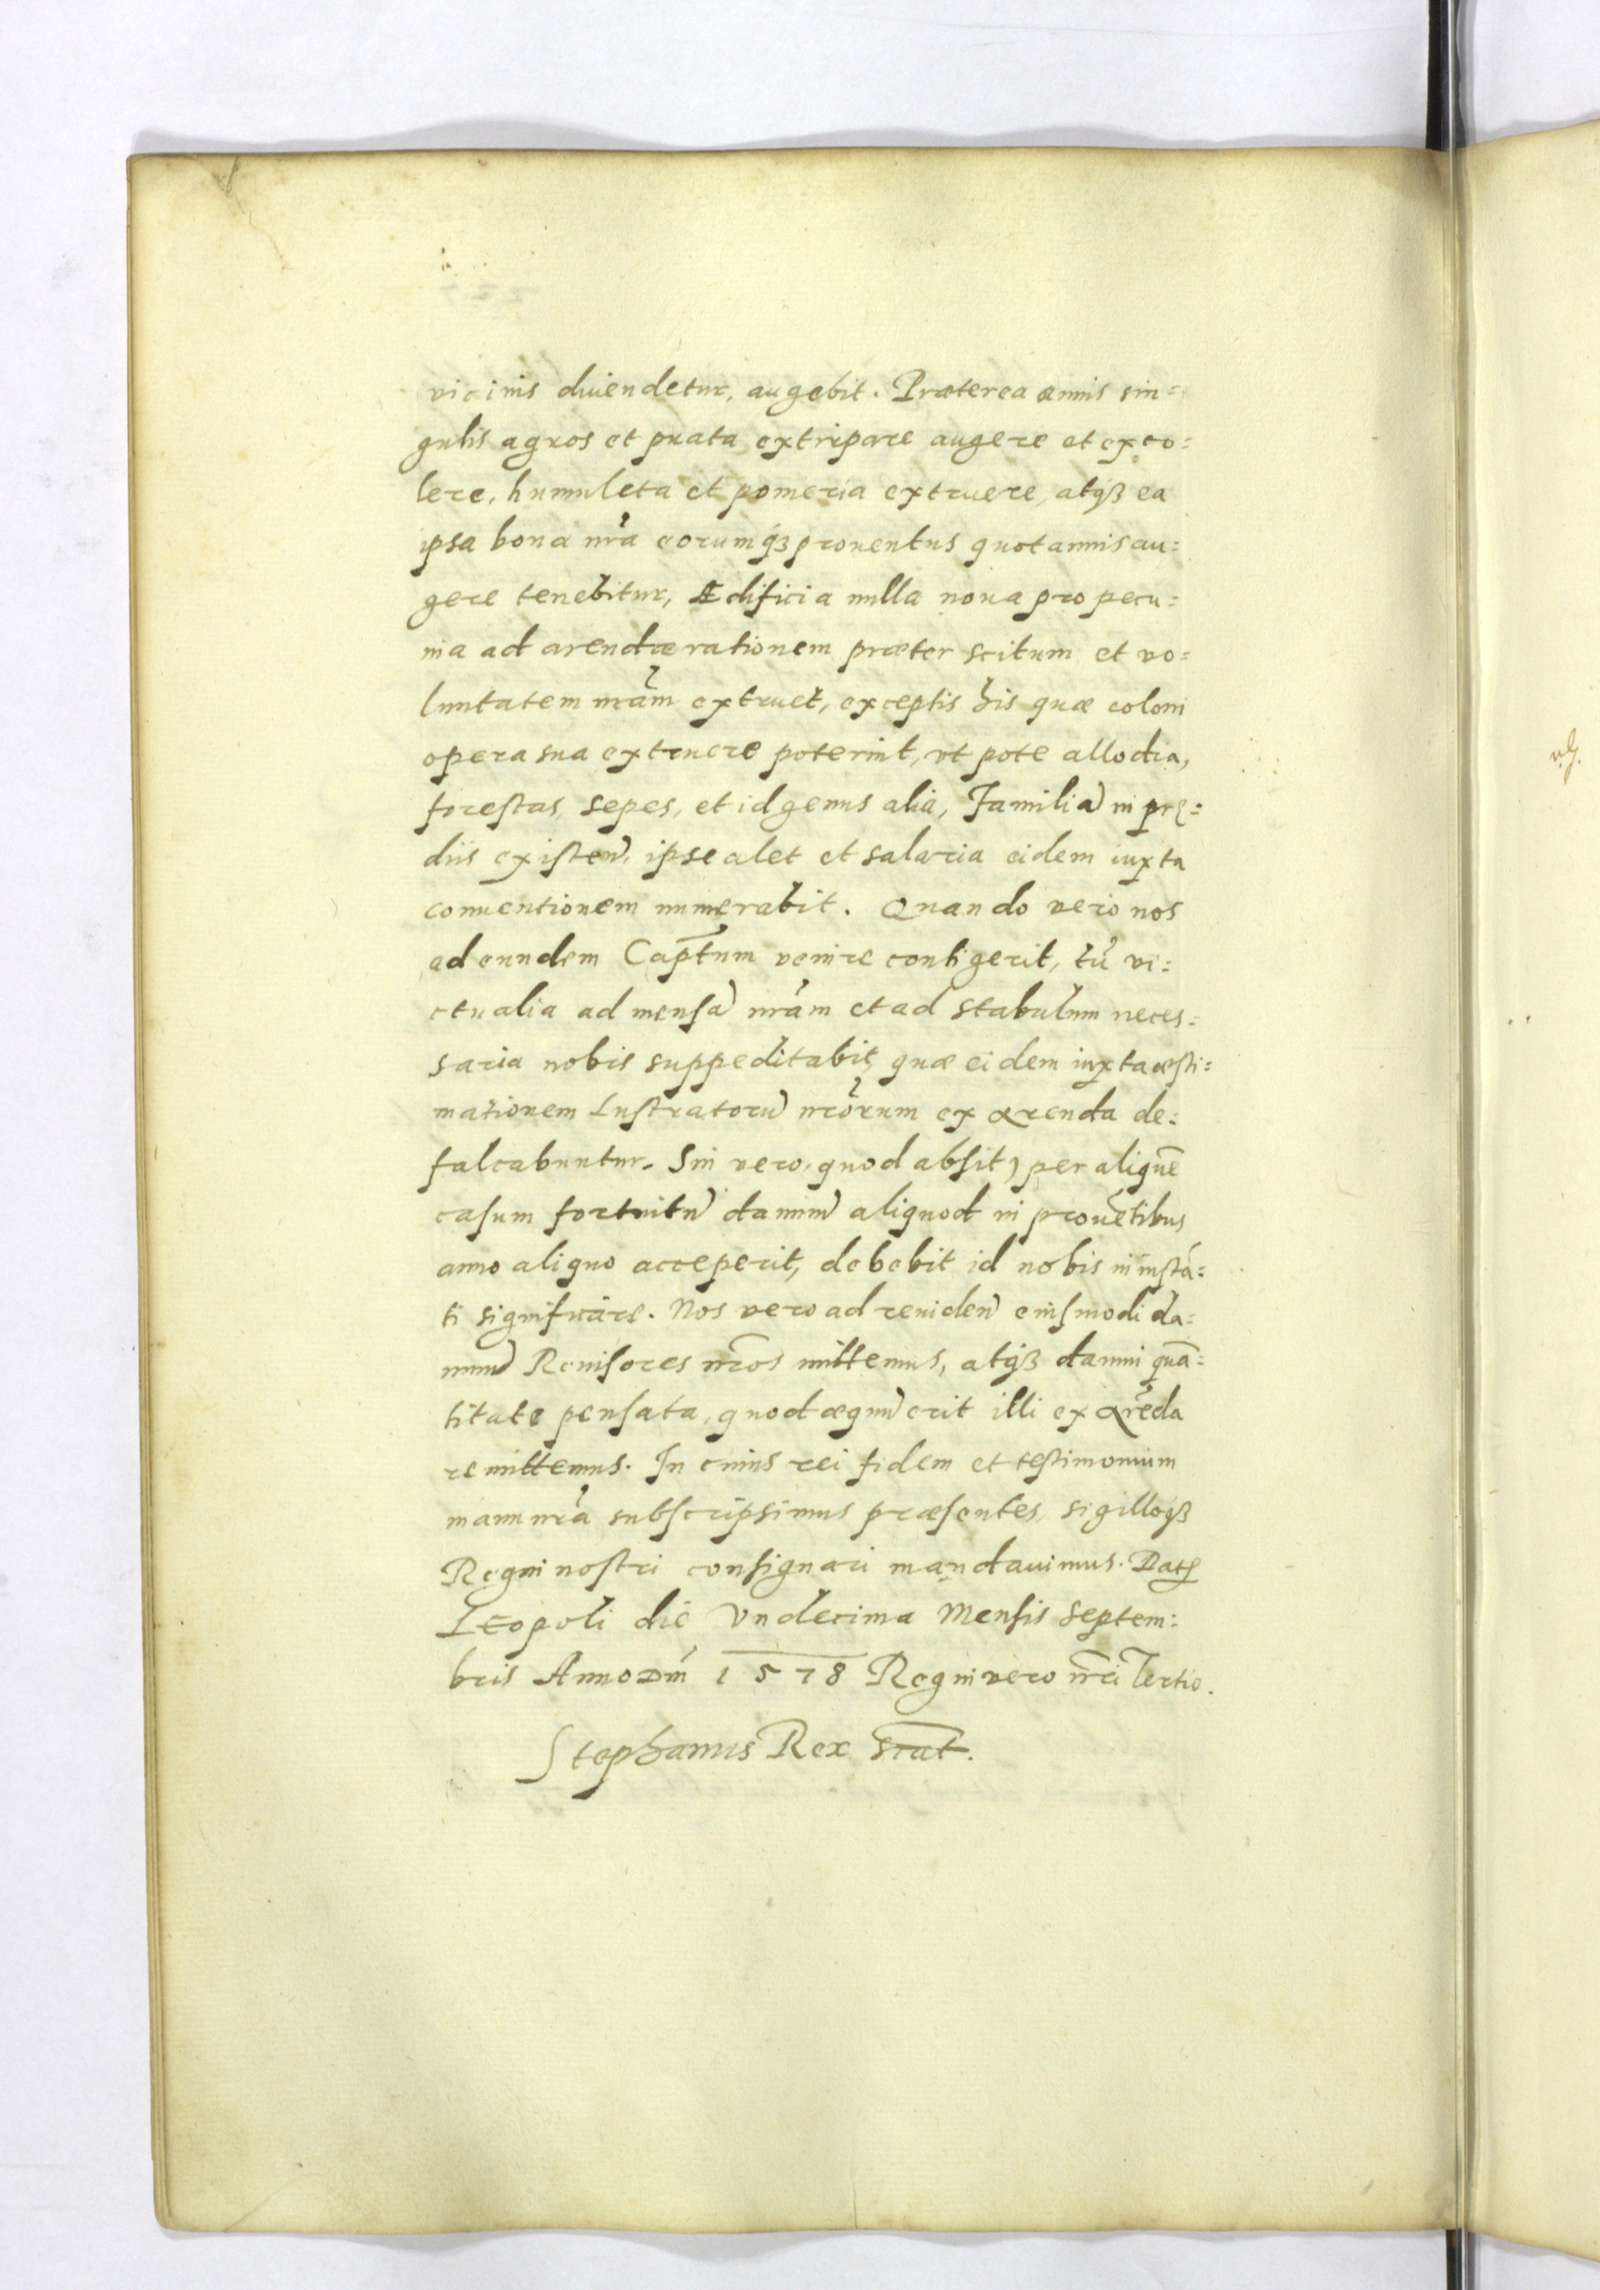 vicinis diuendetur, augebit. Præterea annis sin=
gulis agros et prata extirpare augere et exco=
lere, humuleta et pomeria extruere, atq₃ ea
ipsa bona nr̃a eorumq₃ prouentus quotannis au=
gere tenebitur, Ædificia nulla noua pro pecu=
nia ad arendæ rationem præter scitum et vo=
luntatem nr̃am extruet, exceptis his quæ coloni
opera sua extruere poterint, vt pote allodia,
forestas, sepes, et id genus alia, Familiã in prę=
diis existeñ, ipse alet et salaria eidem iuxta
conuentionem numerabit. Quando vero nos
ad eundem Cap̃tum venire contigerit, tũ vi=
ctualia ad mensã nr̃am et ad stabulum neces=
saria nobis suppeditabit, quæ eidem iuxta æsti=
mationem Lustratorũ nr̃orum ex Arenda de=
falcabuntur. Sin vero, quod absit) per aliquẽ
casum fortuitũ damnũ aliquod in prouẽtibus
anno aliquo acceperit, debebit id nobis in instã=
ti significare. Nos vero ad reuidenđ eiusmodi da=
mnũ Reuisores nr̃os mittemus, atq₃ damni quã=
titate pensata, quod æquũ erit illi ex Arẽda
remittemus. In cuius rei fidem et testimonium
manu nr̃a subscripsimus præsentes, sigilloq₃
Regni nostri consignari mandauimus. Datę
Leopoli die Vndecima Mensis Septem=
bris Anno Dñi 1578 Regni vero nr̃i Tertio.
Stephanus Rex sc̃at.